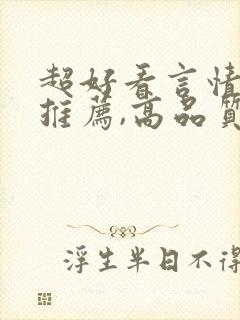 超好看言情
推薦,高品質
浮生半日不得